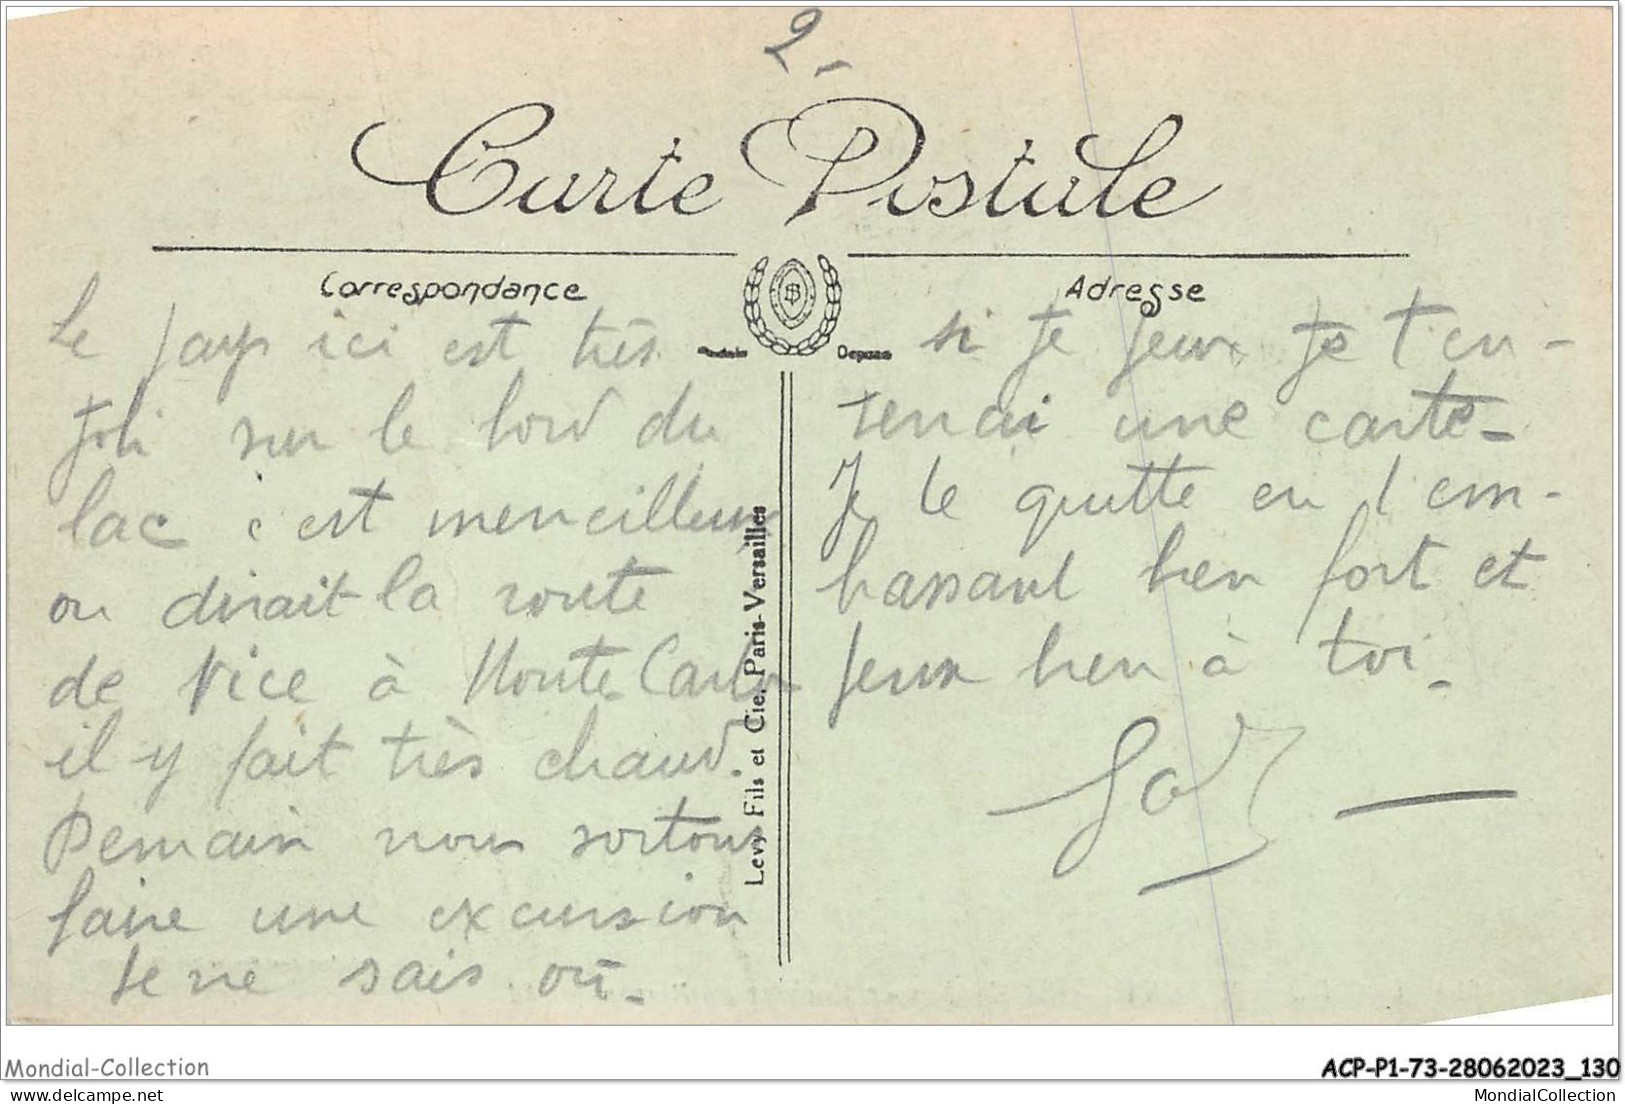 2-
Carte Postale
Correspondance
Adresse
Le pays ici est très
joli sur le bord du
lac c'est merveilleux
on dirait la route
de Nice à Monte Carlo
il y fait très chaud.
Demain nous sortons
faire une excursion
je ne sais où.
Levy Fils et Cie, Paris-Versailles
si je peux je t'en-
verrai une carte-
Je te quitte en t'em-
brassant bien fort et
peux bien à toi.